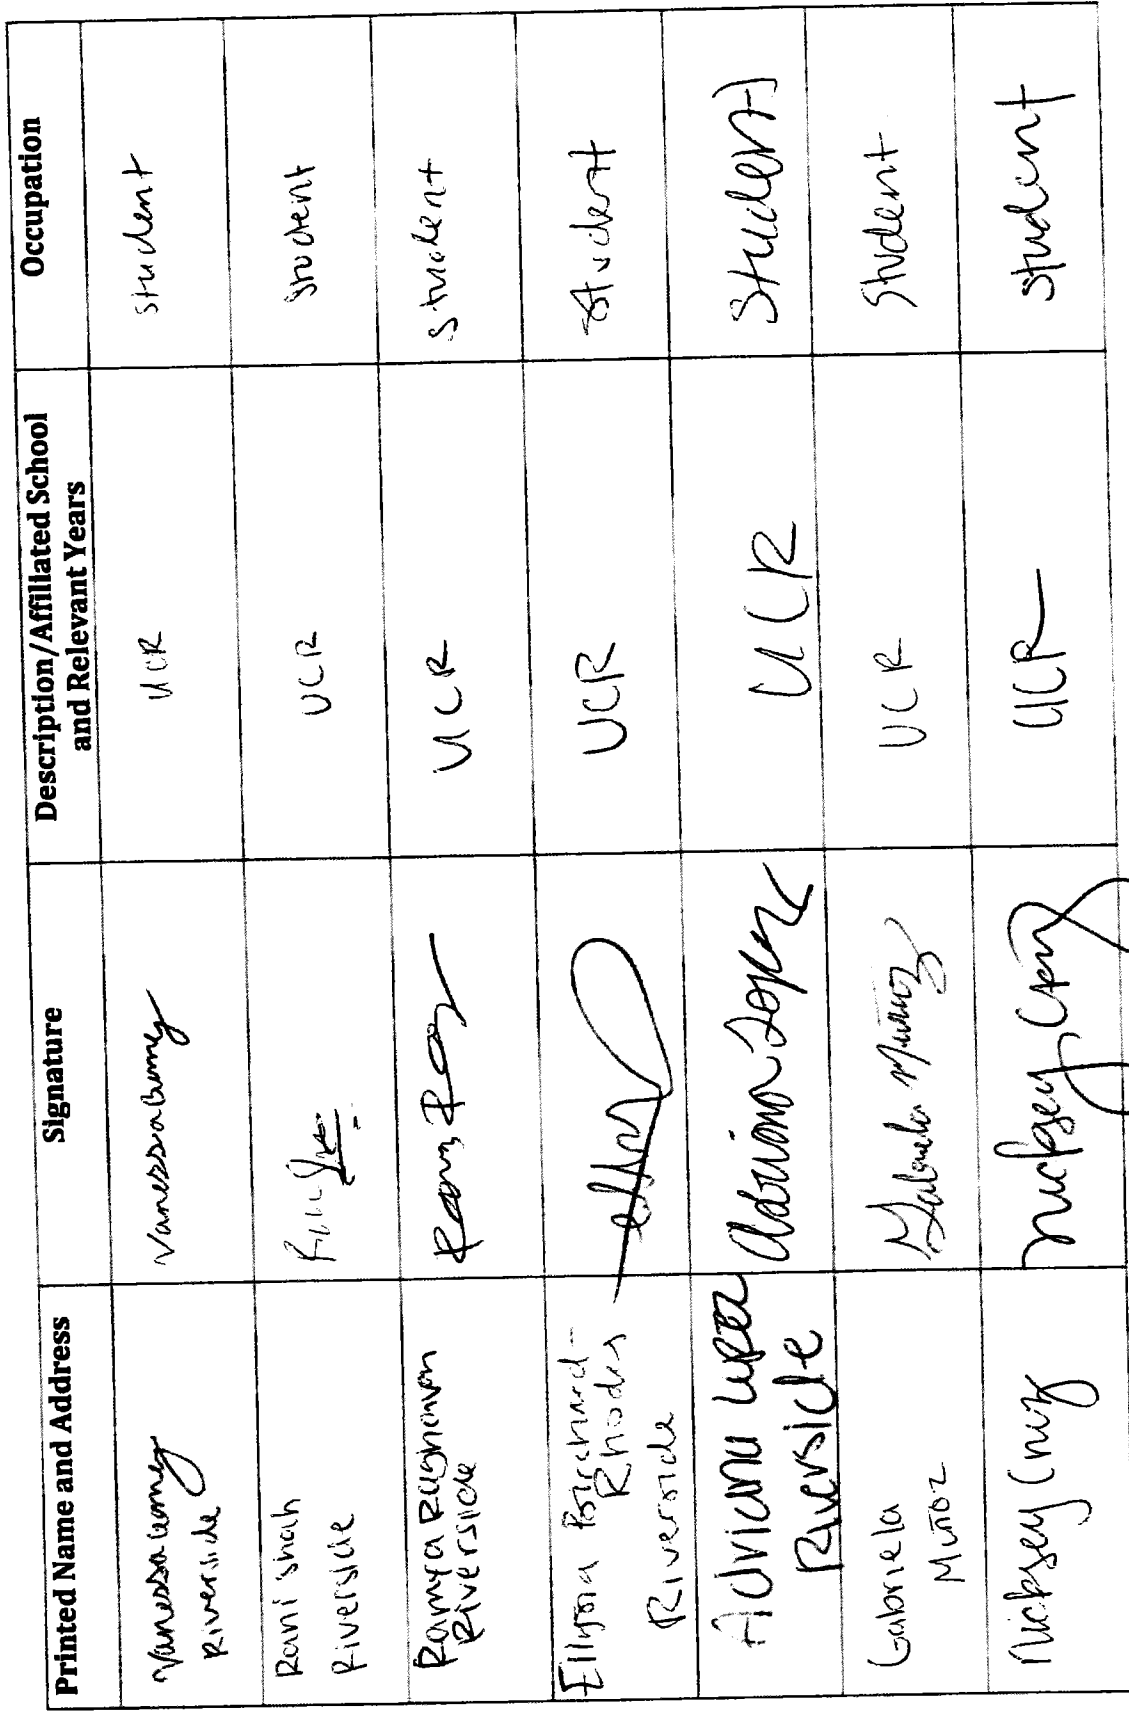 Printed Name and Address Signature Description/Affiliated School and Relevant Years Occupation
Vanessa Gomez
Riverside
Vanessa Gomez
UCR
student
Rani Shah
Riverside
UCR
student
Ramya Raghavan
Riverside
UCR
student
Rhodes
Riverside
UCR
student
Adriana Lopez
Riverside
Adriana Lopez
UCR
student
Gabriela
Muñoz
Gabriela Muñoz
UCR
student
Cruz
Cruz
UCR
student